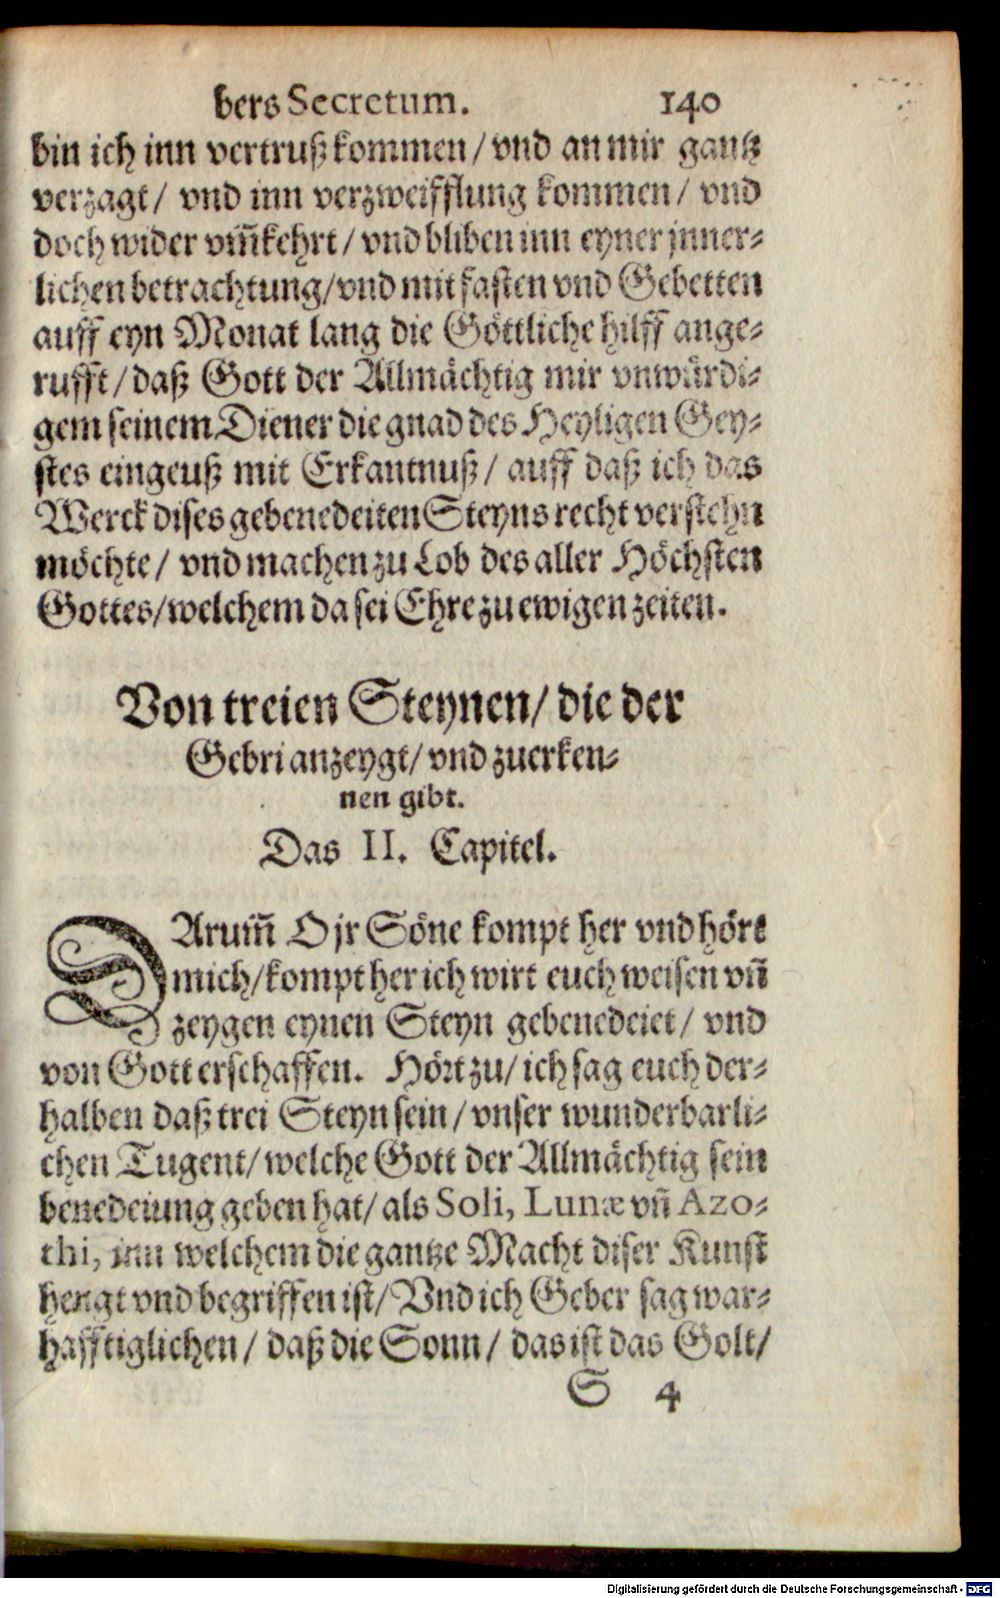 bers Secretum. 140
bin ich inn vertruß kommen / vnd an mir gantz
verzagt / vnd inn verzweifflung kommen / vnd
doch wider vm̃kehrt / vnd bliben inn eyner jnner⸗
lichen betrachtung / vnd mit fasten vnd Gebetten
auff eyn Monat lang die Göttliche hilff ange⸗
rufft / daß Gott der Allmächtig mir vnwürdi⸗
gem seinem Diener die gnad des Heyligen Gey⸗
stes eingeuß mit Erkantnuß / auff daß ich das
Werck dises gebenedeiten Steyns recht verstehn
möchte / vnd machen zu Lob des aller Höchsten
Gottes / welchem da sei Ehre zu ewigen zeiten.
Von treien Steynen / die der
Gebri anzeygt / vnd zuerken⸗
nen gibt.
Das II. Capitel.
DArum̃ O jr Söne kompt her vnd hört
mich / kompt her ich wirt euch weisen vñ
zeygen eynen Steyn gebenedeiet / vnd
von Gott erschaffen. Hört zu / ich sag euch der⸗
halben daß trei Steyn sein / vnser wunderbarli⸗
chen Tugent / welche Gott der Allmächtig sein
benedeiung geben hat / als Soli, Lunæ vñ Azo⸗
thi, inn welchem die gantze Macht diser Kunst
hengt vnd begriffen ist / Vnd ich Geber sag war⸗
hafftiglichen / daß die Sonn / das ist das Golt /
S 4
Digitalisierung gefördert durch die Deutsche Forschungsgemeinschaft - DFG